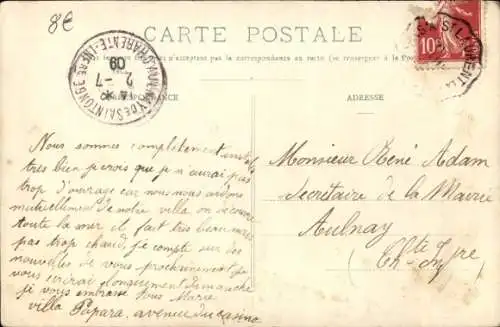 8€
CARTE POSTALE
n'acceptent pas la correspondance au recto (se renseigner à la Poste)
CORRESPONDANCE
ADRESSE
AULNAY DE SAINTONGE
CHARENTE-INFRE
2 - 7
09
ST L
10
Nous sommes complètement
très bien je crois que je n'aurai pas
trop d'ouvrage car nous nous aidons
mutuellement De notre villa on découvre
toute la mer il fait très beau mais
pas trop chaud, je compte sur des
nouvelles de vous prochainement je
vous écrirai longuement dimanche
je vous embrasse tous Marie
villa Papara, avenue du casino
Monsieur René Adam
Secrétaire de la Mairie
Aulnay
(Chte Infre)